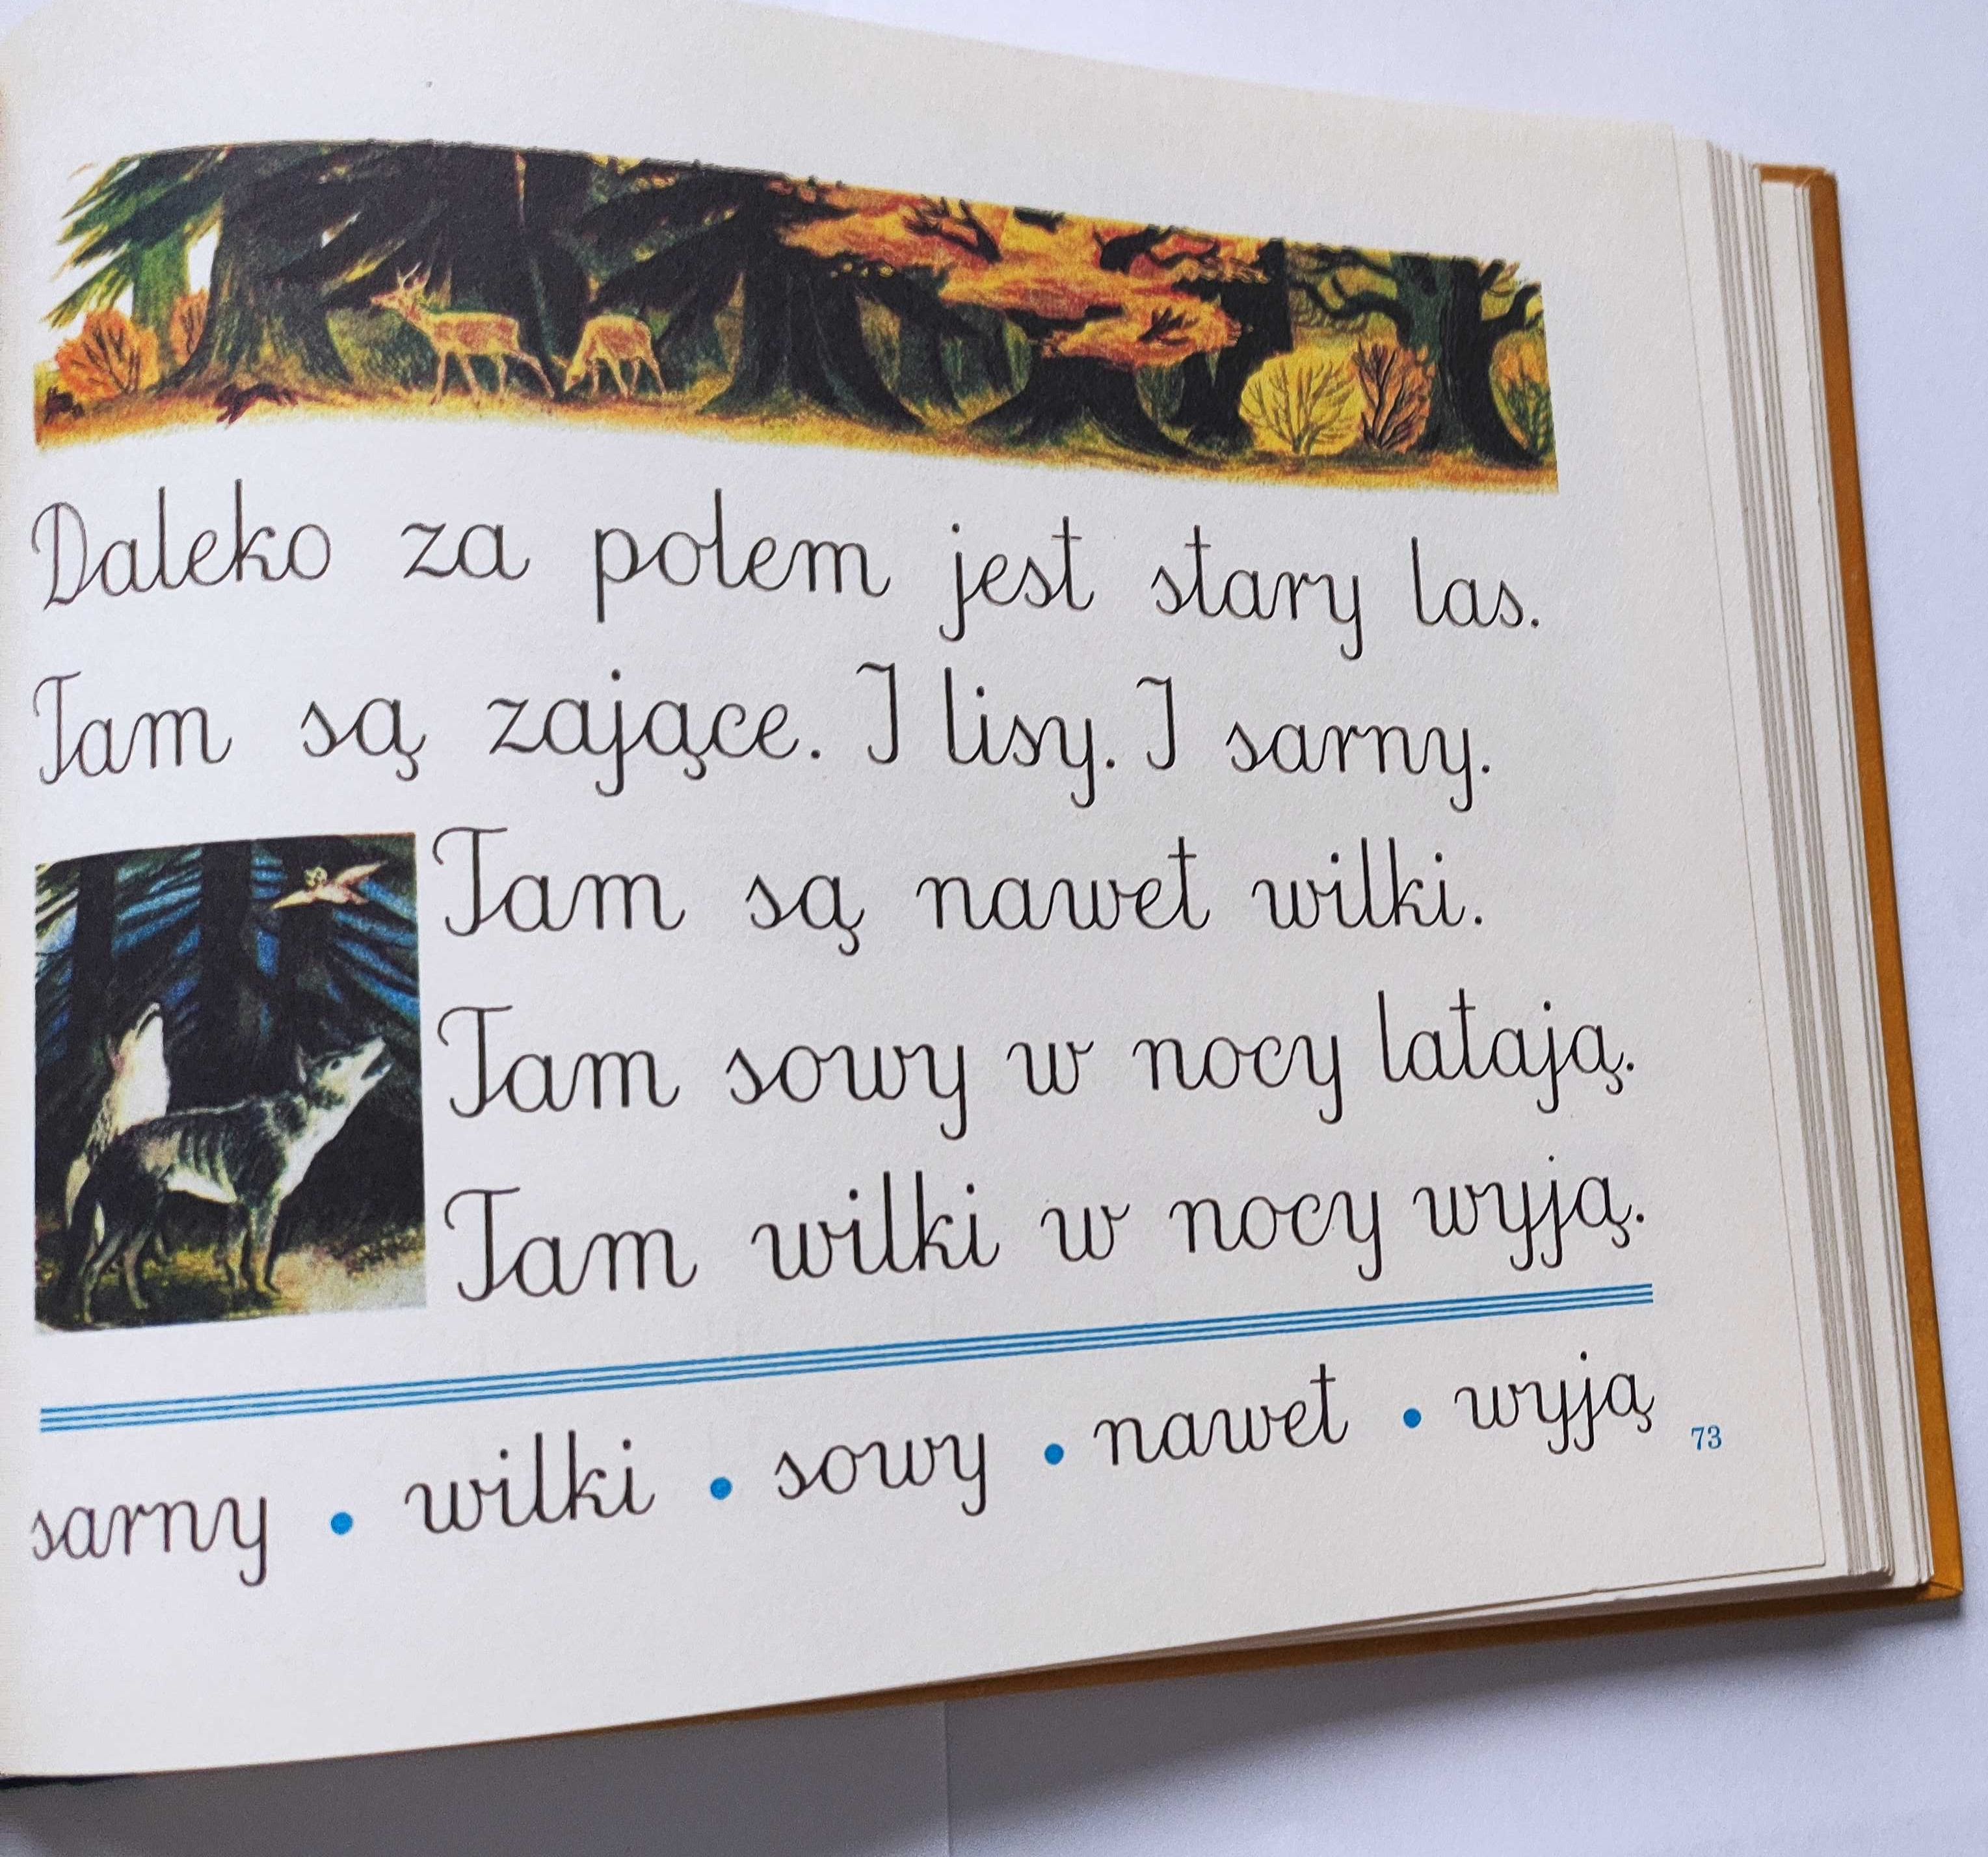 Daleko za polem jest stary las.
Tam są zające. I lisy. I sarny.
Tam są nawet wilki.
Tam sowy w nocy latają.
Tam wilki w nocy wyją.
sarny • wilki • sowy • nawet • wyją
73